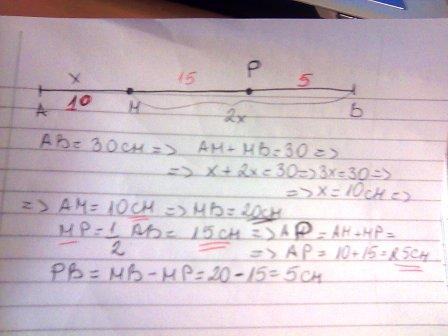 x 15 P 5
A 10 M 2x B
AB = 30CM => AM + MB = 30 =>
=> x + 2x = 30 => 3x = 30 =>
=> x = 10CM =>
=> AM = 10CM => MB = 20CM
MP = 1/2 AB = 15CM => AP = AM + MP =
=> AP = 10 + 15 = 25CM
PB = MB - MP = 20 - 15 = 5CM